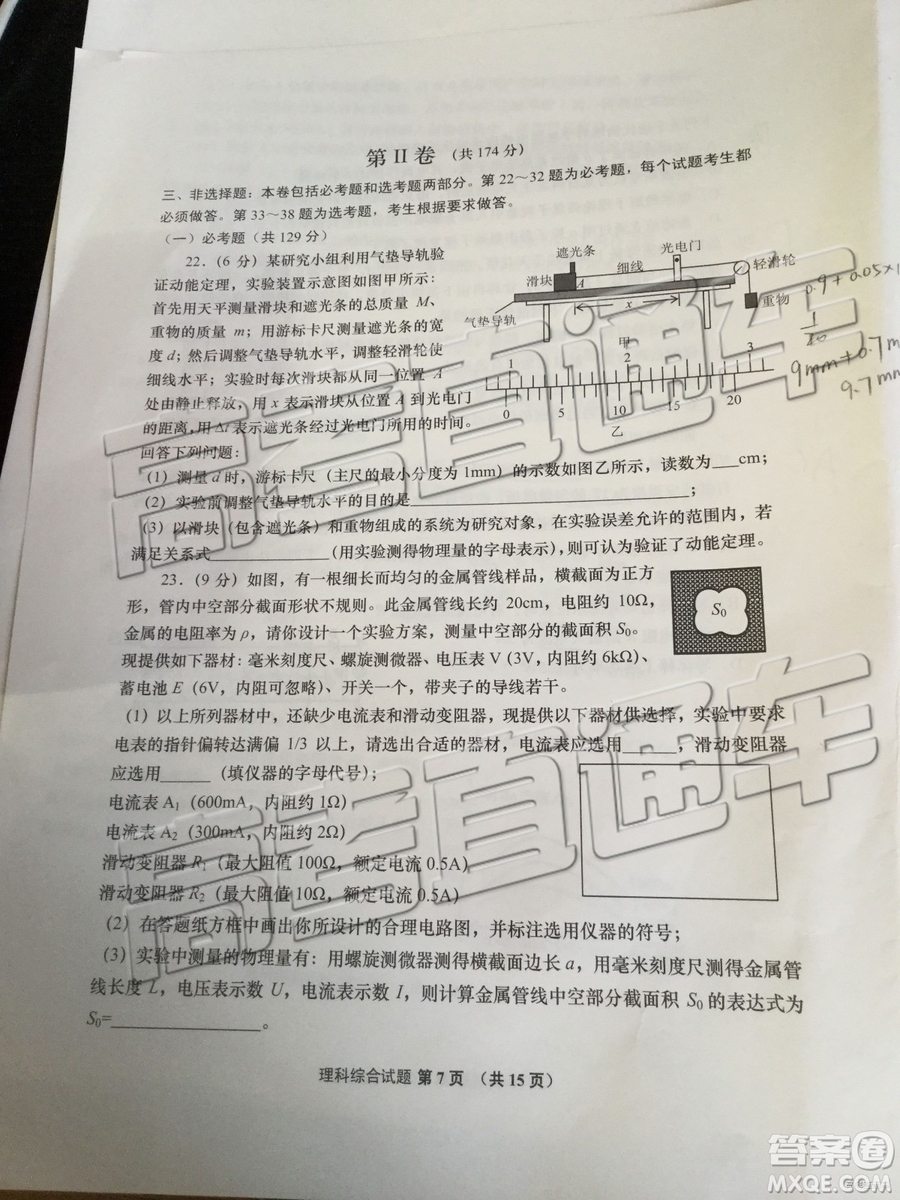 第 II 卷 (共 174 分)
三、非选择题：本卷包括必考题和选考题两部分。第 22～32 题为必考题，每个试题考生都
必须做答。第 33～38 题为选考题，考生根据要求做答。
（一）必考题（共 129 分）
22.（6 分）某研究小组利用气垫导轨验
证动能定理，实验装置示意图如图甲所示：
首先用天平测量滑块和遮光条的总质量 M、
重物的质量 m；用游标卡尺测量遮光条的宽
度 d；然后调整气垫导轨水平，调整轻滑轮使
细线水平；实验时每次滑块都从同一位置 A
处由静止释放，用 x 表示滑块从位置 A 到光电门
的距离，用 Δt 表示遮光条经过光电门所用的时间。
回答下列问题：
遮光条
光电门
滑块
A
细线
轻滑轮
x
重物
气垫导轨
甲
1 2 3
0 5 10 15 20
乙
0.9+0.05×1
1/20
9mm+0.7m
9.7mm
（1）测量 d 时，游标卡尺（主尺的最小分度为 1mm）的示数如图乙所示，读数为___cm；
（2）实验前调整气垫导轨水平的目的是______________________________；
（3）以滑块（包含遮光条）和重物组成的系统为研究对象，在实验误差允许的范围内，若
满足关系式______________（用实验测得物理量的字母表示），则可认为验证了动能定理。
23.（9 分）如图，有一根细长而均匀的金属管线样品，横截面为正方
形，管内中空部分截面形状不规则。此金属管线长约 20cm，电阻约 10Ω，
金属的电阻率为 ρ，请你设计一个实验方案，测量中空部分的截面积 S₀。
现提供如下器材：毫米刻度尺、螺旋测微器、电压表 V（3V，内阻约 6kΩ）、
蓄电池 E（6V，内阻可忽略）、开关一个，带夹子的导线若干。
S₀
（1）以上所列器材中，还缺少电流表和滑动变阻器，现提供以下器材供选择，实验中要求
电表的指针偏转达满偏 1/3 以上，请选出合适的器材，电流表应选用______，滑动变阻器
应选用______（填仪器的字母代号）；
电流表 A₁（600mA，内阻约 1Ω）
电流表 A₂（300mA，内阻约 2Ω）
滑动变阻器 R₁（最大阻值 100Ω，额定电流 0.5A）
滑动变阻器 R₂（最大阻值 10Ω，额定电流 0.5A）
（2）在答题纸方框中画出你所设计的合理电路图，并标注选用仪器的符号；
（3）实验中测量的物理量有：用螺旋测微器测得横截面边长 a，用毫米刻度尺测得金属管
线长度 L，电压表示数 U，电流表示数 I，则计算金属管线中空部分截面积 S₀ 的表达式为
S₀=________________。
理科综合试题 第 7 页 （共 15 页）
高考直通车
高考直通车
答案圈
MXQE.COM